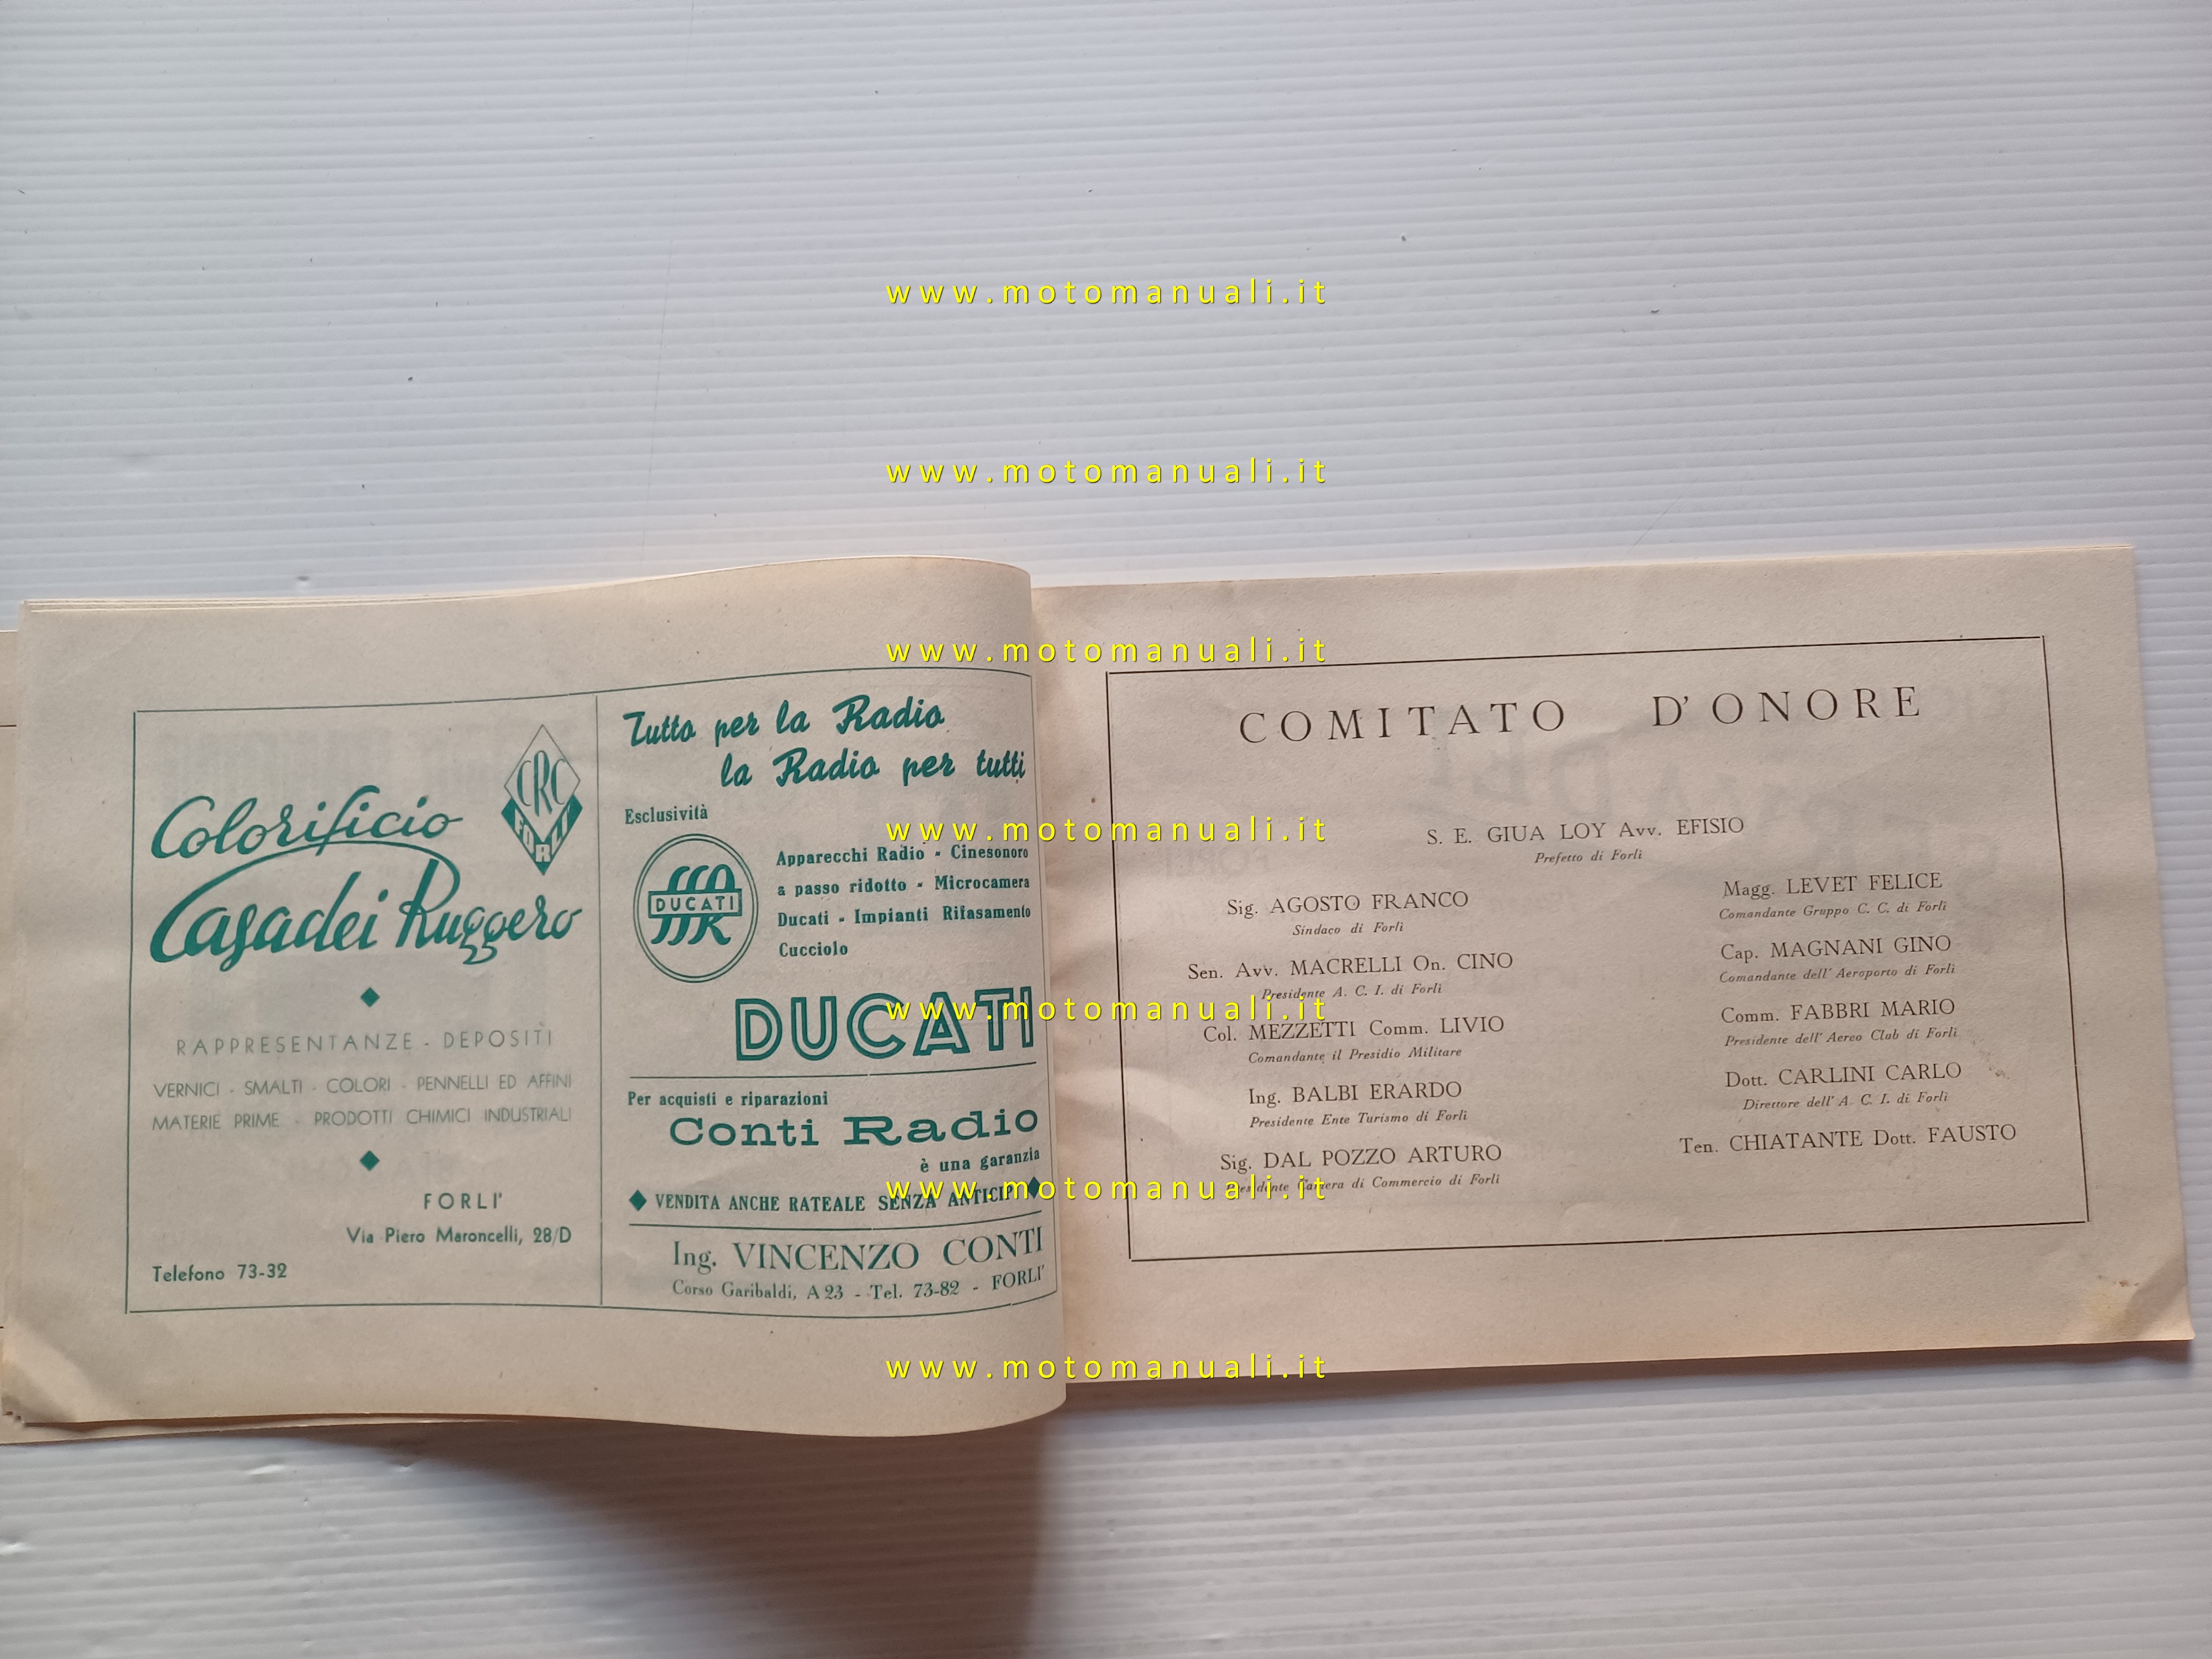 www.motomanuali.it
www.motomanuali.it
www.motomanuali.it
www.motomanuali.it
www.motomanuali.it
www.motomanuali.it
www.motomanuali.it
CRC
FORLI
Colorificio
Casadei Ruggero
RAPPRESENTANZE - DEPOSITI
VERNICI - SMALTI - COLORI - PENNELLI ED AFFINI
MATERIE PRIME - PRODOTTI CHIMICI INDUSTRIALI
FORLI'
Via Piero Maroncelli, 28/D
Telefono 73-32
Tutto per la Radio
la Radio per tutti
Esclusività
DUCATI
Apparecchi Radio - Cinesonoro
a passo ridotto - Microcamera
Ducati - Impianti Rifasamento
Cucciolo
DUCATI
Per acquisti e riparazioni
Conti Radio
è una garanzia
VENDITA ANCHE RATEALE SENZA ANTICIP
Ing. VINCENZO CONTI
Corso Garibaldi, A 23 - Tel. 73-82 - FORLI'
COMITATO D'ONORE
S. E. GIUA LOY Avv. EFISIO
Prefetto di Forlì
Sig. AGOSTO FRANCO
Sindaco di Forlì
Sen. Avv. MACRELLI On. CINO
Presidente A. C. I. di Forlì
Col. MEZZETTI Comm. LIVIO
Comandante il Presidio Militare
Ing. BALBI ERARDO
Presidente Ente Turismo di Forlì
Sig. DAL POZZO ARTURO
Presidente Camera di Commercio di Forlì
Magg. LEVET FELICE
Comandante Gruppo C. C. di Forlì
Cap. MAGNANI GINO
Comandante dell' Aeroporto di Forlì
Comm. FABBRI MARIO
Presidente dell' Aereo Club di Forlì
Dott. CARLINI CARLO
Direttore dell' A. C. I. di Forlì
Ten. CHIATANTE Dott. FAUSTO